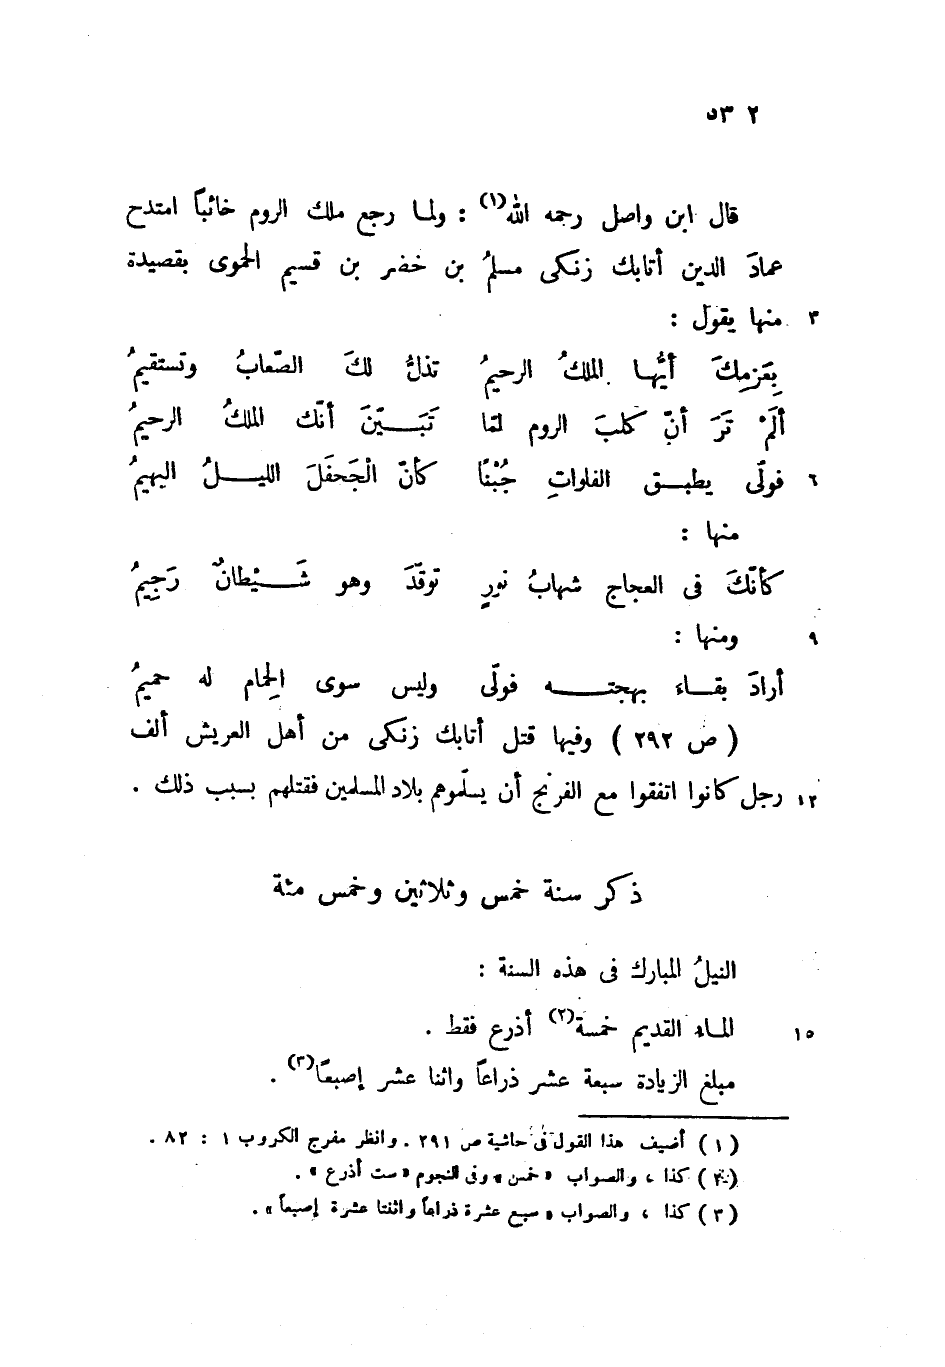 ٥٣٢
قال ابن واصل رحمه الله(١) : ولما رجع ملك الروم خائباً امتدح
عمادَ الدين أتابك زنكى مسلمُ بن خضر بن قسيم الحموى بقصيدة
٣ منها يقول :
بِعَزمِكَ أيُّها الملكُ الرحيمُ تذلُّ لكَ الصّعابُ وتستقيمُ
ألَمْ تَرَ أنّ كلبَ الروم لمّا تَبَيّنَ أنّك الملكُ الرحيمُ
٦ فولّى يطبق الفلواتِ جُبْنًا كأنّ الْجَحفَلَ الليلُ البهيمُ
منها :
كأنّكَ فى العجاج شهابُ نورٍ توقّدَ وهو شَيْطانٌ رَجِيمُ
٩ ومنها :
أرادَ بقاء بهجته فولّى وليس سوى الِحمام له حميمُ
( ص ٢٩٢ ) وفيها قتل أتابك زنكى من أهل العريش ألف
١٢ رجل كانوا اتفقوا مع الفرنج أن يسلّموهم بلاد المسلمين فقتلهم بسبب ذلك .
ذكر سنة خمس وثلاثين وخمس مئة
النيلُ المبارك فى هذه السنة :
١٥ الماء القديم خمسة(٢) أذرع فقط .
مبلغ الزيادة سبعة عشر ذراعاً واثنا عشر إصبعاً(٣) .
(١) أضيف هذا القول فى حاشية ص ٢٩١ . وانظر مفرج الكروب ١ : ٨٢ .
(٢) كذا ، والصواب « خمس » وفى النجوم « ست أذرع » .
(٣) كذا ، والصواب « سبع عشرة ذراعاً واثنتا عشرة إصبعاً » .